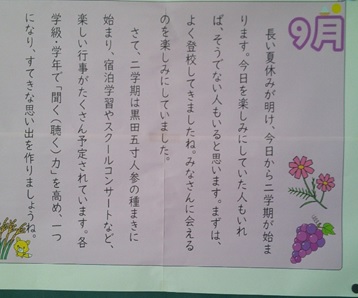 9月
長い夏休みが明け、今日から二学期が始ま
ります。今日を楽しみにしていた人もいれ
ば、そうでない人もいると思います。まずは、
よく登校してきましたね。みなさんに会える
のを楽しみにしていました。
さて、二学期は黒田五寸人参の種まきに
始まり、宿泊学習やスクールコンサートなど、
楽しい行事がたくさん予定されています。各
学級・学年で「聞く(聴く)力」を高め、一つ
になり、すてきな思い出を作りましょうね。